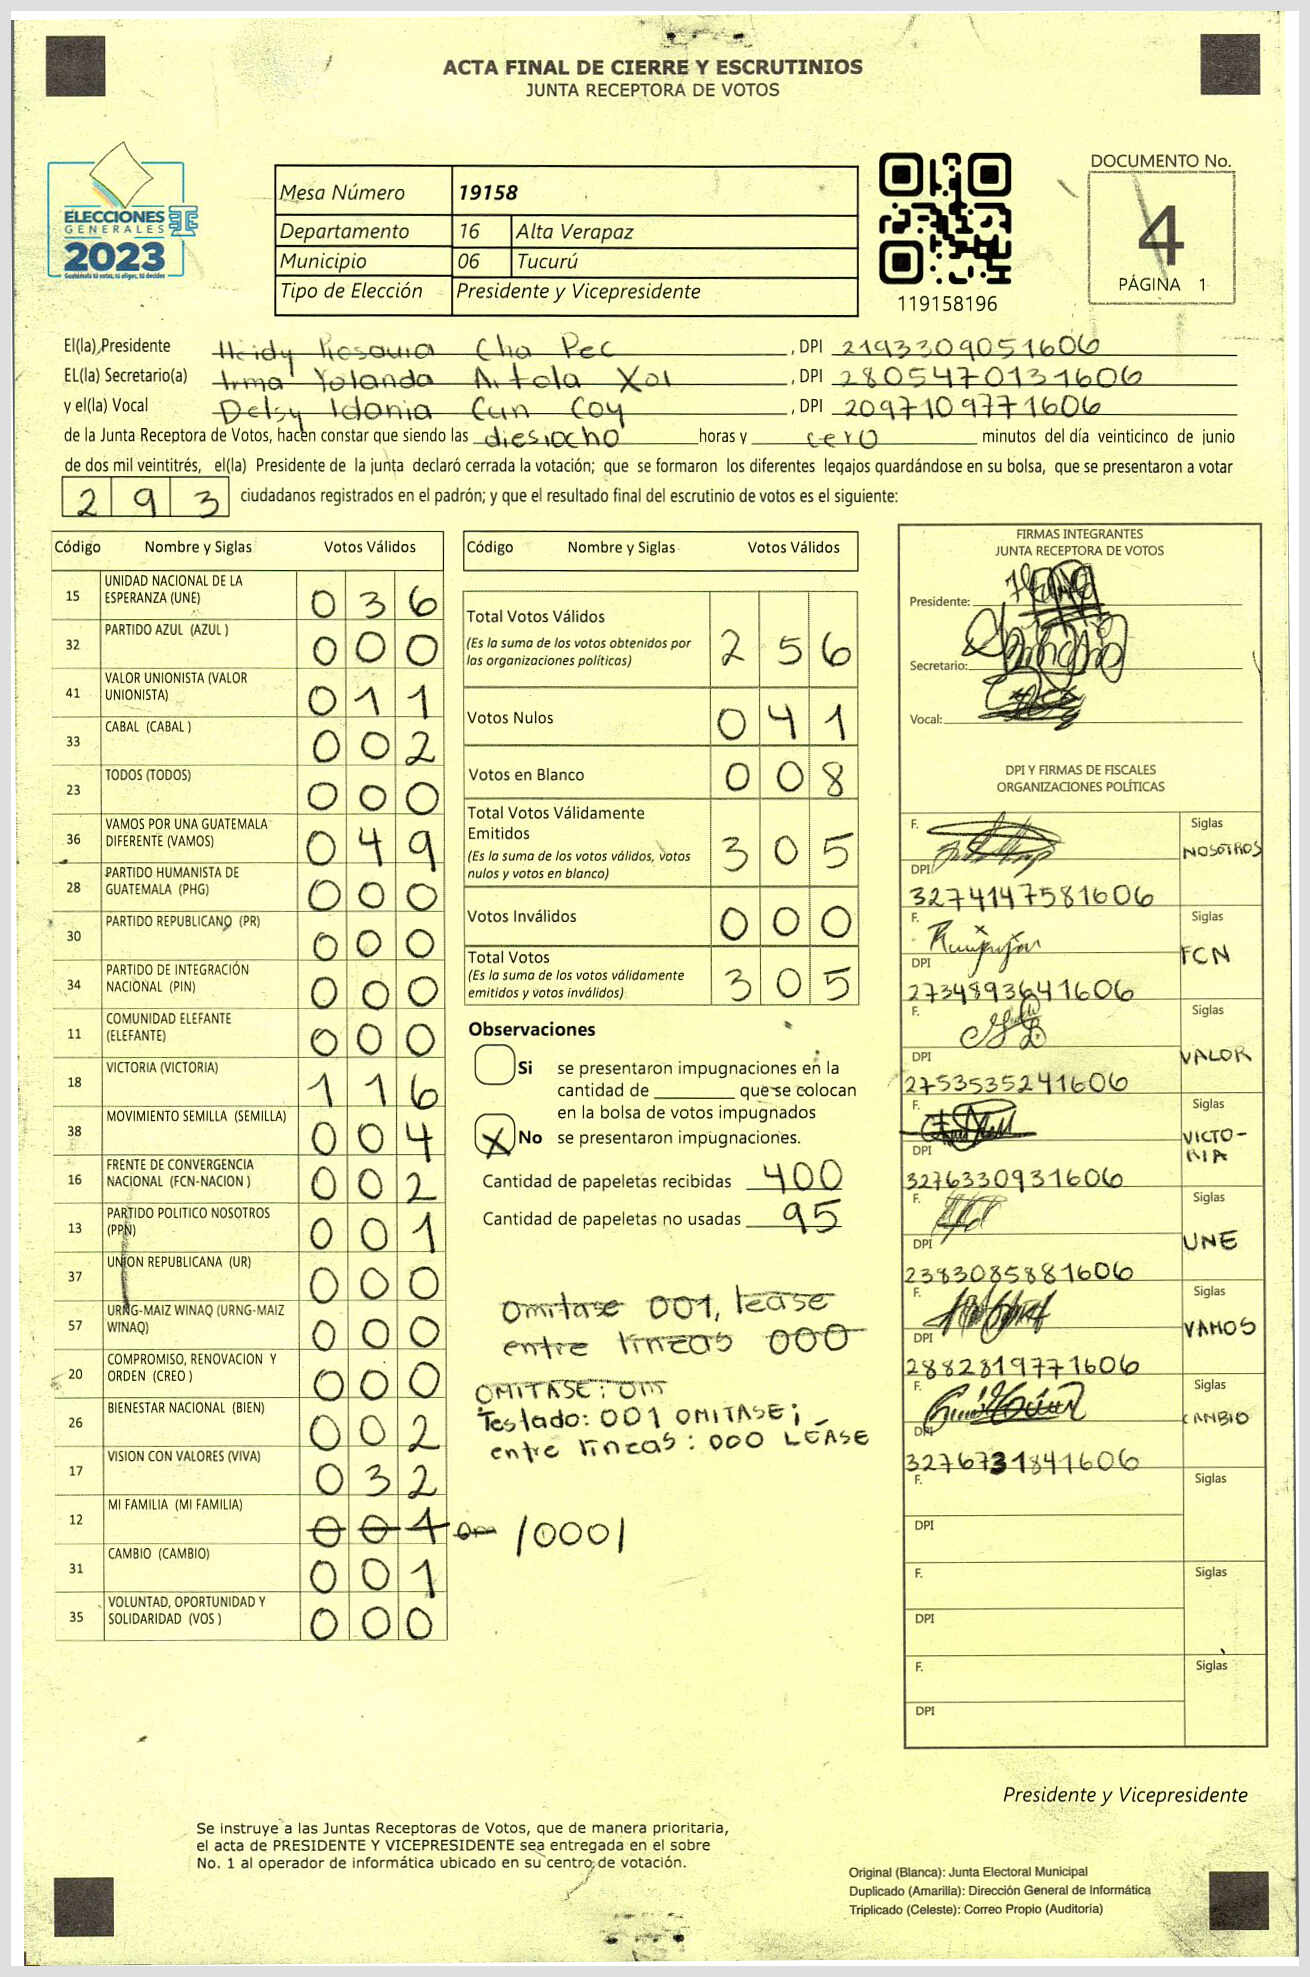 ACTA FINAL DE CIERRE Y ESCRUTINIOS
JUNTA RECEPTORA DE VOTOS
ELECCIONES
GENERALES
2023
Guatemala tú votas, tú eliges, tú decides
Mesa Número 19158
Departamento 16 Alta Verapaz
Municipio 06 Tucurú
Tipo de Elección Presidente y Vicepresidente
119158196
DOCUMENTO No.
4
PÁGINA 1
El(la) Presidente Heidy Rosaura Cha Pec, DPI 2193309051606
EL(la) Secretario(a) Irma Yolanda Artola Xol, DPI 2805470131606
y el(la) Vocal Delsy Idania Cun Coy, DPI 2097109771606
de la Junta Receptora de Votos, hacen constar que siendo las diesiocho horas y cero minutos del día veinticinco de junio
de dos mil veintitrés, el(la) Presidente de la junta declaró cerrada la votación; que se formaron los diferentes legajos quardándose en su bolsa, que se presentaron a votar
293 ciudadanos registrados en el padrón; y que el resultado final del escrutinio de votos es el siguiente:
Código Nombre y Siglas Votos Válidos
15 UNIDAD NACIONAL DE LA ESPERANZA (UNE) 036
32 PARTIDO AZUL (AZUL ) 000
41 VALOR UNIONISTA (VALOR UNIONISTA) 011
33 CABAL (CABAL ) 002
23 TODOS (TODOS) 000
36 VAMOS POR UNA GUATEMALA DIFERENTE (VAMOS) 049
28 PARTIDO HUMANISTA DE GUATEMALA (PHG) 000
30 PARTIDO REPUBLICANO (PR) 000
34 PARTIDO DE INTEGRACIÓN NACIONAL (PIN) 000
11 COMUNIDAD ELEFANTE (ELEFANTE) 000
18 VICTORIA (VICTORIA) 116
38 MOVIMIENTO SEMILLA (SEMILLA) 004
16 FRENTE DE CONVERGENCIA NACIONAL (FCN-NACION ) 002
13 PARTIDO POLITICO NOSOTROS (PPN) 001
37 UNION REPUBLICANA (UR) 000
57 URNG-MAIZ WINAQ (URNG-MAIZ WINAQ) 000
20 COMPROMISO, RENOVACION Y ORDEN (CREO ) 000
26 BIENESTAR NACIONAL (BIEN) 002
17 VISION CON VALORES (VIVA) 032
12 MI FAMILIA (MI FAMILIA) 001 /000/
31 CAMBIO (CAMBIO) 001
35 VOLUNTAD, OPORTUNIDAD Y SOLIDARIDAD (VOS ) 000
Código Nombre y Siglas Votos Válidos
Total Votos Válidos 256
(Es la suma de los votos obtenidos por
las organizaciones políticas)
Votos Nulos 041
Votos en Blanco 008
Total Votos Válidamente
Emitidos 305
(Es la suma de los votos válidos, votos
nulos y votos en blanco)
Votos Inválidos 000
Total Votos 305
(Es la suma de los votos válidamente
emitidos y votos inválidos)
Observaciones
Si se presentaron impugnaciones en la
cantidad de ________ que se colocan
en la bolsa de votos impugnados
X No se presentaron impugnaciones.
Cantidad de papeletas recibidas 400
Cantidad de papeletas no usadas 95
Omitase 001, lease
entre lineas 000
OMITASE: OM
Testado: 001 OMITASE;
entre líneas: 000 LÉASE
FIRMAS INTEGRANTES
JUNTA RECEPTORA DE VOTOS
Presidente:
Secretario:
Vocal:
DPI Y FIRMAS DE FISCALES
ORGANIZACIONES POLÍTICAS
F. Siglas
DPI NOSOTROS
3274147581606
F. Siglas
DPI FCN
2734893641606
F. Siglas
DPI VALOR
2753535241606
F. Siglas
DPI VICTO-
RIA
3276330931606
F. Siglas
DPI UNE
2383085881606
F. Siglas
DPI VAMOS
2882819771606
F. Siglas
DPI CAMBIO
3276731841606
F. Siglas
DPI
F. Siglas
DPI
F. Siglas
DPI
Presidente y Vicepresidente
Se instruye a las Juntas Receptoras de Votos, que de manera prioritaria,
el acta de PRESIDENTE Y VICEPRESIDENTE sea entregada en el sobre
No. 1 al operador de informática ubicado en su centro de votación.
Original (Blanca): Junta Electoral Municipal
Duplicado (Amarilla): Dirección General de Informática
Triplicado (Celeste): Correo Propio (Auditoria)